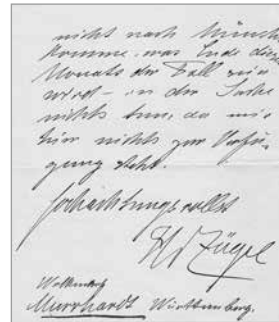 nicht nach Münch
komme, was Ende dies
Monats der Fall sein
wird – in der Sache
nichts tun, da mir
hier nichts zur Verfü-
gung steht.
Hochachtungsvollst
H v Zügel
Murrhardt Württemberg.